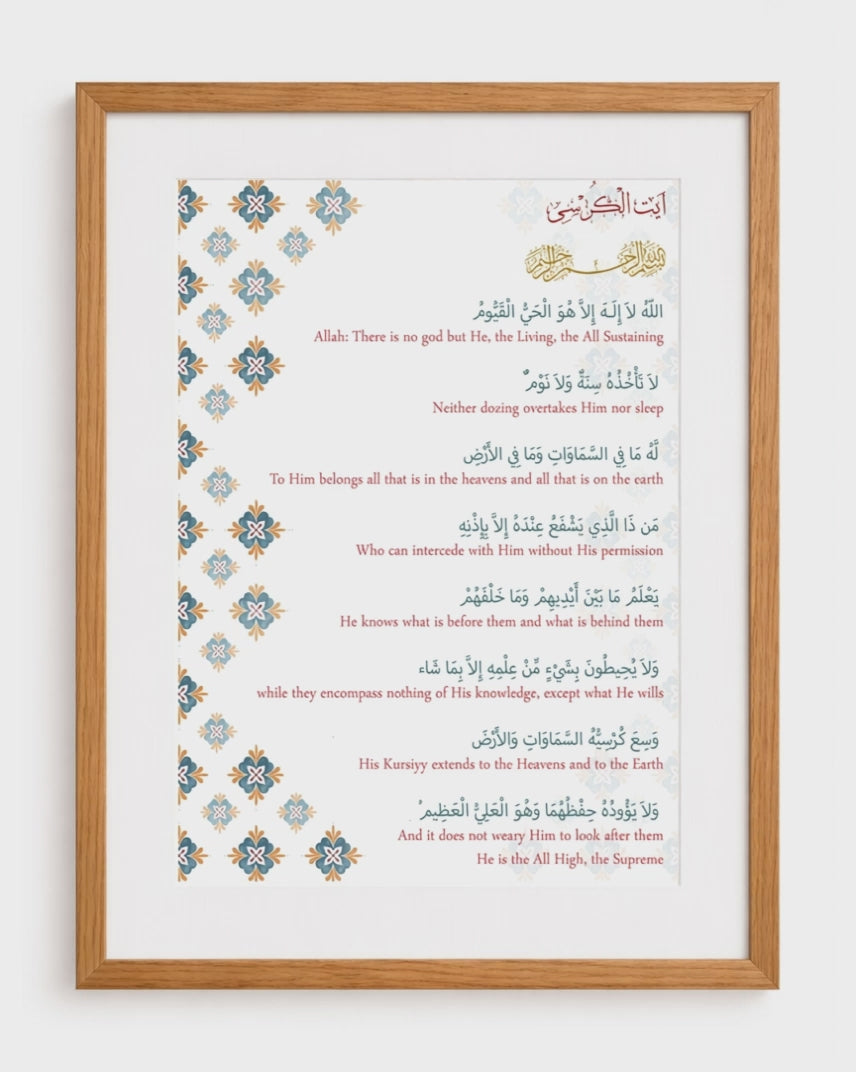 اَيَت الْكُرْسِى
بسم الله الرحمن الرحيم
اللّهُ لاَ إِلَـهَ إِلاَّ هُوَ الْحَيُّ الْقَيُّومُ
Allah: There is no god but He, the Living, the All Sustaining
لاَ تَأْخُذُهُ سِنَةٌ وَلاَ نَوْمٌ
Neither dozing overtakes Him nor sleep
لَّهُ مَا فِي السَّمَاوَاتِ وَمَا فِي الأَرْضِ
To Him belongs all that is in the heavens and all that is on the earth
مَن ذَا الَّذِي يَشْفَعُ عِنْدَهُ إِلاَّ بِإِذْنِهِ
Who can intercede with Him without His permission
يَعْلَمُ مَا بَيْنَ أَيْدِيهِمْ وَمَا خَلْفَهُمْ
He knows what is before them and what is behind them
وَلاَ يُحِيطُونَ بِشَيْءٍ مِّنْ عِلْمِهِ إِلاَّ بِمَا شَاء
while they encompass nothing of His knowledge, except what He wills
وَسِعَ كُرْسِيُّهُ السَّمَاوَاتِ وَالأَرْضَ
His Kursiyy extends to the Heavens and to the Earth
وَلاَ يَؤُودُهُ حِفْظُهُمَا وَهُوَ الْعَلِيُّ الْعَظِيمُ
And it does not weary Him to look after them
He is the All High, the Supreme